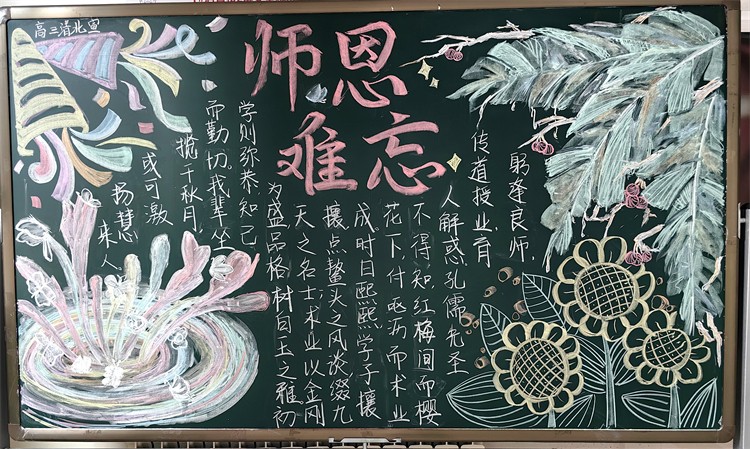 高三清北重
师恩
难忘
躬逢良师,
传道授业,育
人解惑,孔儒先圣
不得知红梅间而樱
花下,付
而术业
成时日熙熙学子攘
攘点鳌头之风谈缀九
天之名士;术业以金刚
为盛品格材自玉之雅初
学则弥恭,知己
而勤切。我辈坐
揽千秋月,
或可激
扬慧
来人